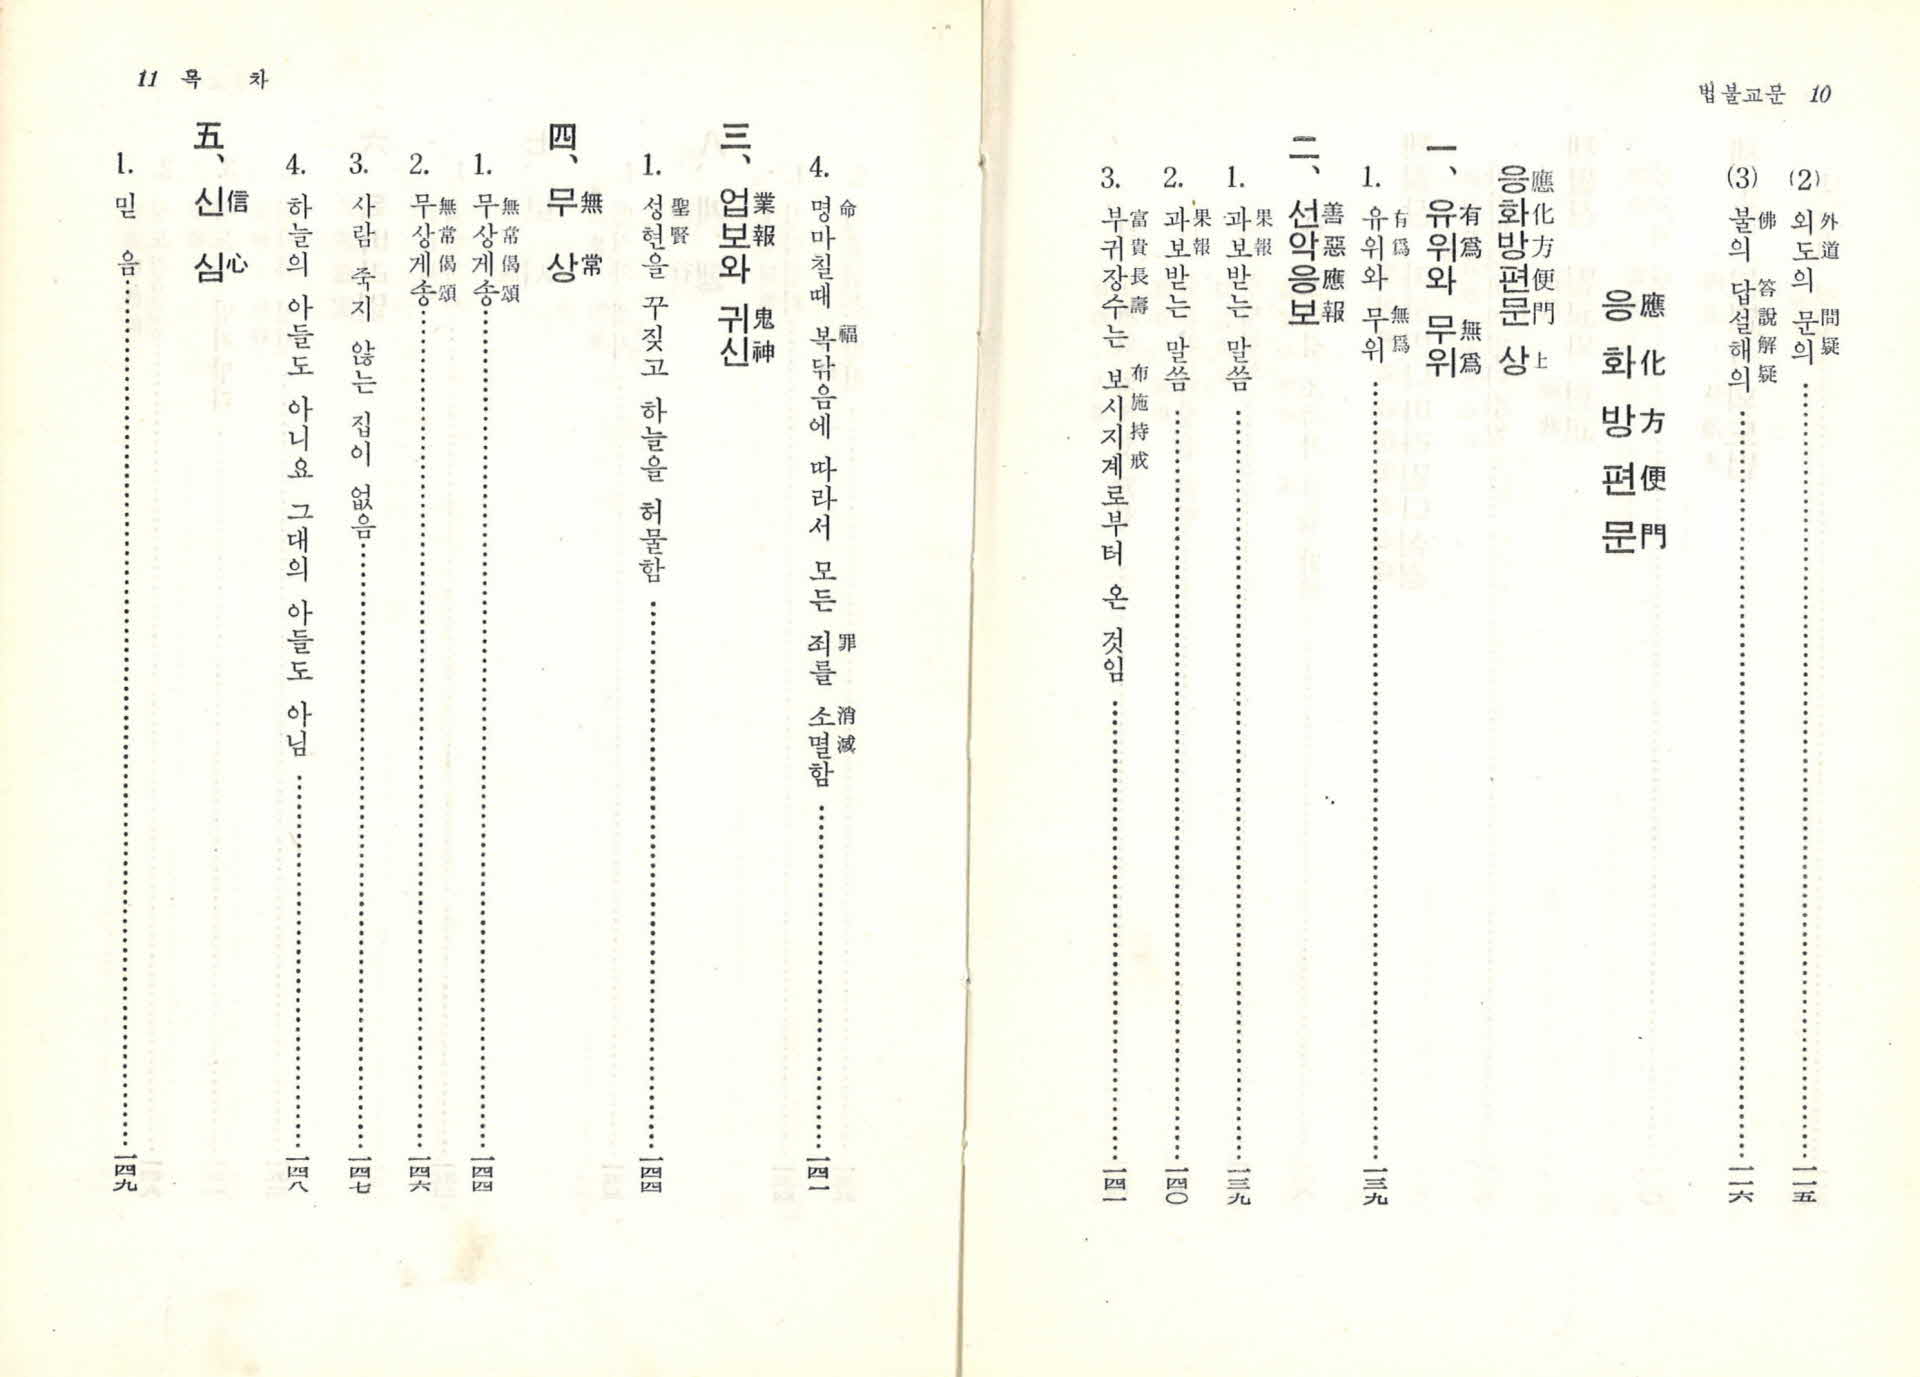 법불교문 10
(2) 외도의 문의 外道 問疑 一一五
(3) 불의 답설해의 佛 答說解疑 一一六
응화방편문 應化方便門
응화방편문 상 應化方便門 上
一、 유위와 무위 有爲 無爲
1. 유위와 무위 有爲 無爲 一三九
二、 선악응보 善惡應報
1. 과보받는 말씀 果報 一三九
2. 과보받는 말씀 果報 一四〇
3. 부귀장수는 보시지계로부터 온 것임 富貴長壽 布施持戒 一四一
11 목 차
4. 명마칠때 복닦음에 따라서 모든 죄를 소멸함 命 福 罪 消滅 一四一
三、 업보와 귀신 業報 鬼神
1. 성현을 꾸짖고 하늘을 허물함 聖賢 一四四
四、 무상 無常
1. 무상게송 無常偈頌 一四四
2. 무상게송 無常偈頌 一四六
3. 사람 죽지 않는 집이 없음 一四七
4. 하늘의 아들도 아니요 그대의 아들도 아님 一四八
五、 신심 信心
1. 믿 음 一四九